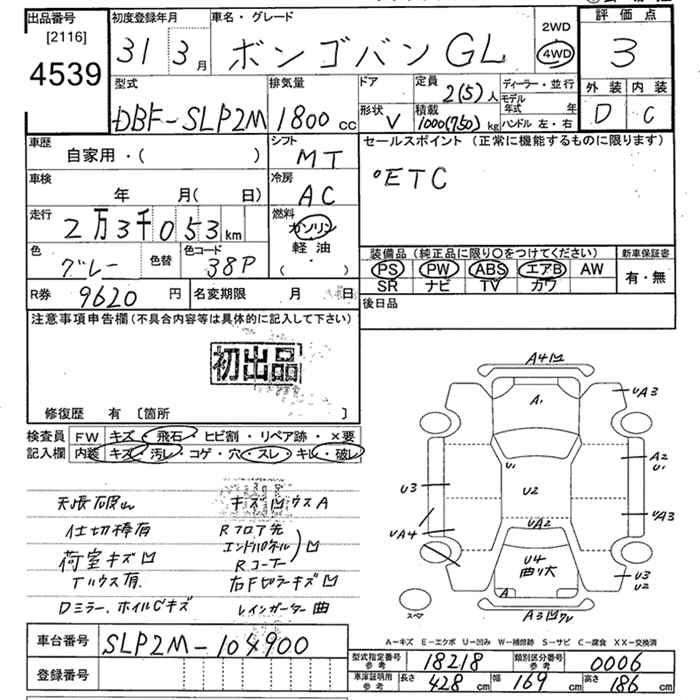 出品番号
[2116]
4539
初度登録年月
31 3 月
車名・グレード
ボンゴバン GL
2WD
4WD
評価点
3
外装 内装
D C
型式
DBF-SLP2M
排気量
1800 cc
ドア
形状 V
定員
2(5) 人
積載
1000(750) kg
ディーラー・並行
モデル年式 年
ハンドル 左・右
車歴
自家用・( )
シフト
MT
セールスポイント (正常に機能するものに限ります)
°ETC
車検
年 月( 日)
冷房
AC
走行
2万3千053 km
燃料
ガソリン
軽油
( ・ )
色
グレー
色替
色コード
38P
装備品 (純正品に限り〇をつけてください)
PS PW ABS エアB AW
SR ナビ TV カワ
新車保証書
有・無
R券 9620 円
名変期限 月 日
後日品
注意事項申告欄 (不具合内容等は具体的に記入して下さい)
初出品
修復歴 有 〔箇所 〕
検査員 FW キズ・飛石・ヒビ割・リペア跡・×要
記入欄 内装 キズ・汚レ・コゲ・穴・スレ・キレ・破レ
天張破れ
キズ凹ウスA
仕切棒有
Rフロア先
荷室キズ凹
エンドパネル
Rコーナー
凹
Tハウス有
右Fピラーキズ凹
Dミラー、ホイルCキズ
レインガーター曲
A4凹
A1
UA3
U1
A2
U1
U3
U2
UA3
UA4
UA2
U4
曲リ大
A
U3
U2
スペア
A3凹ワレ
A-キズ E-エクボ U-凹み W-補修跡 S-サビ C-腐食 XX-交換済
車台番号 SLP2M-104900
登録番号
型式指定番号
参考 18218
類別区分番号
参考 0006
車庫証明用
参考
長さ 428 cm
幅 169 cm
高さ 186 cm